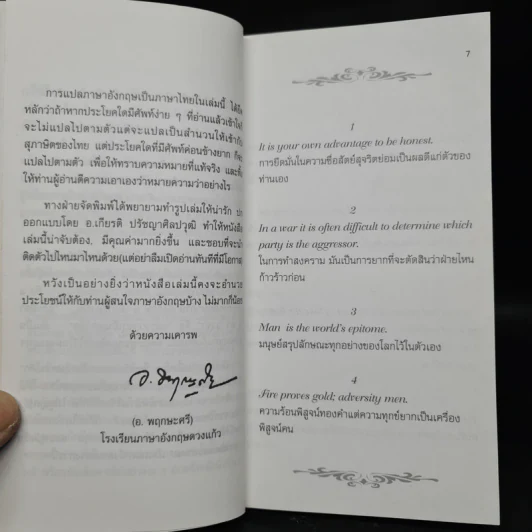 การแปลภาษาอังกฤษเป็นภาษาไทยในเล่มนี้ ได้ยึด
หลักว่าถ้าหากประโยคใดมีศัพท์ง่าย ๆ ที่อ่านแล้วเข้าใจ
จะไม่แปลไปตามตัวแต่จะแปลเป็นสำนวนให้เข้ากับ
สุภาษิตของไทย แต่ประโยคใดที่มีศัพท์ค่อนข้างยาก ก็
แปลไปตามตัว เพื่อให้ทราบความหมายที่แท้จริง และ
ให้ท่านผู้อ่านตีความเอาเองว่าหมายความว่าอย่างไร
ทางฝ่ายจัดพิมพ์ได้พยายามทำรูปเล่มให้น่ารัก
ออกแบบโดย อ.เกียรติ ปรัชญาศิลปวุฒิ ทำให้หนังสือ
เล่มนี้น่าจับต้อง, มีคุณค่ามากยิ่งขึ้น และชอบที่จะ
ติดตัวไปไหนมาไหนด้วย(แต่อย่าลืมเปิดอ่านทันทีที่มีโอกาส
หวังเป็นอย่างยิ่งว่าหนังสือเล่มนี้คงจะอำนวย
ประโยชน์ให้กับท่านผู้สนใจภาษาอังกฤษบ้าง ไม่มากก็น้อย
ด้วยความเคารพ
(อ. พฤกษะศรี)
โรงเรียนภาษาอังกฤษดวงแก้ว
7
1
It is your own advantage to be honest.
การยึดมั่นในความซื่อสัตย์สุจริตย่อมเป็นผลดีแก่ตัวของ
ท่านเอง
2
In a war it is often difficult to determine which
party is the aggressor.
ในการทำสงคราม มันเป็นการยากที่จะตัดสินว่าฝ่ายไหน
ก้าวร้าวก่อน
3
Man is the world's epitome.
มนุษย์สรุปลักษณะทุกอย่างของโลกไว้ในตัวเอง
4
Fire proves gold; adversity men.
ความร้อนพิสูจน์ทองคำแต่ความทุกข์ยากเป็นเครื่อง
พิสูจน์คน